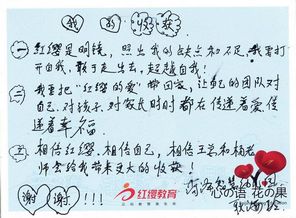 我的收获
一 红缨是明镜，照出我的缺点和不足，我要打
开自我，敢于走出去，超越自我！
二 我要把“红缨的爱”带回家，让自己的团队对
自己、对孩子、对家长时时都在传递着爱传
递着幸福。
三 相信红缨，相信自己，相信王总和杨老
师会给我带来更大的收获！
谢谢!!!
红缨教育
心の语 花の果